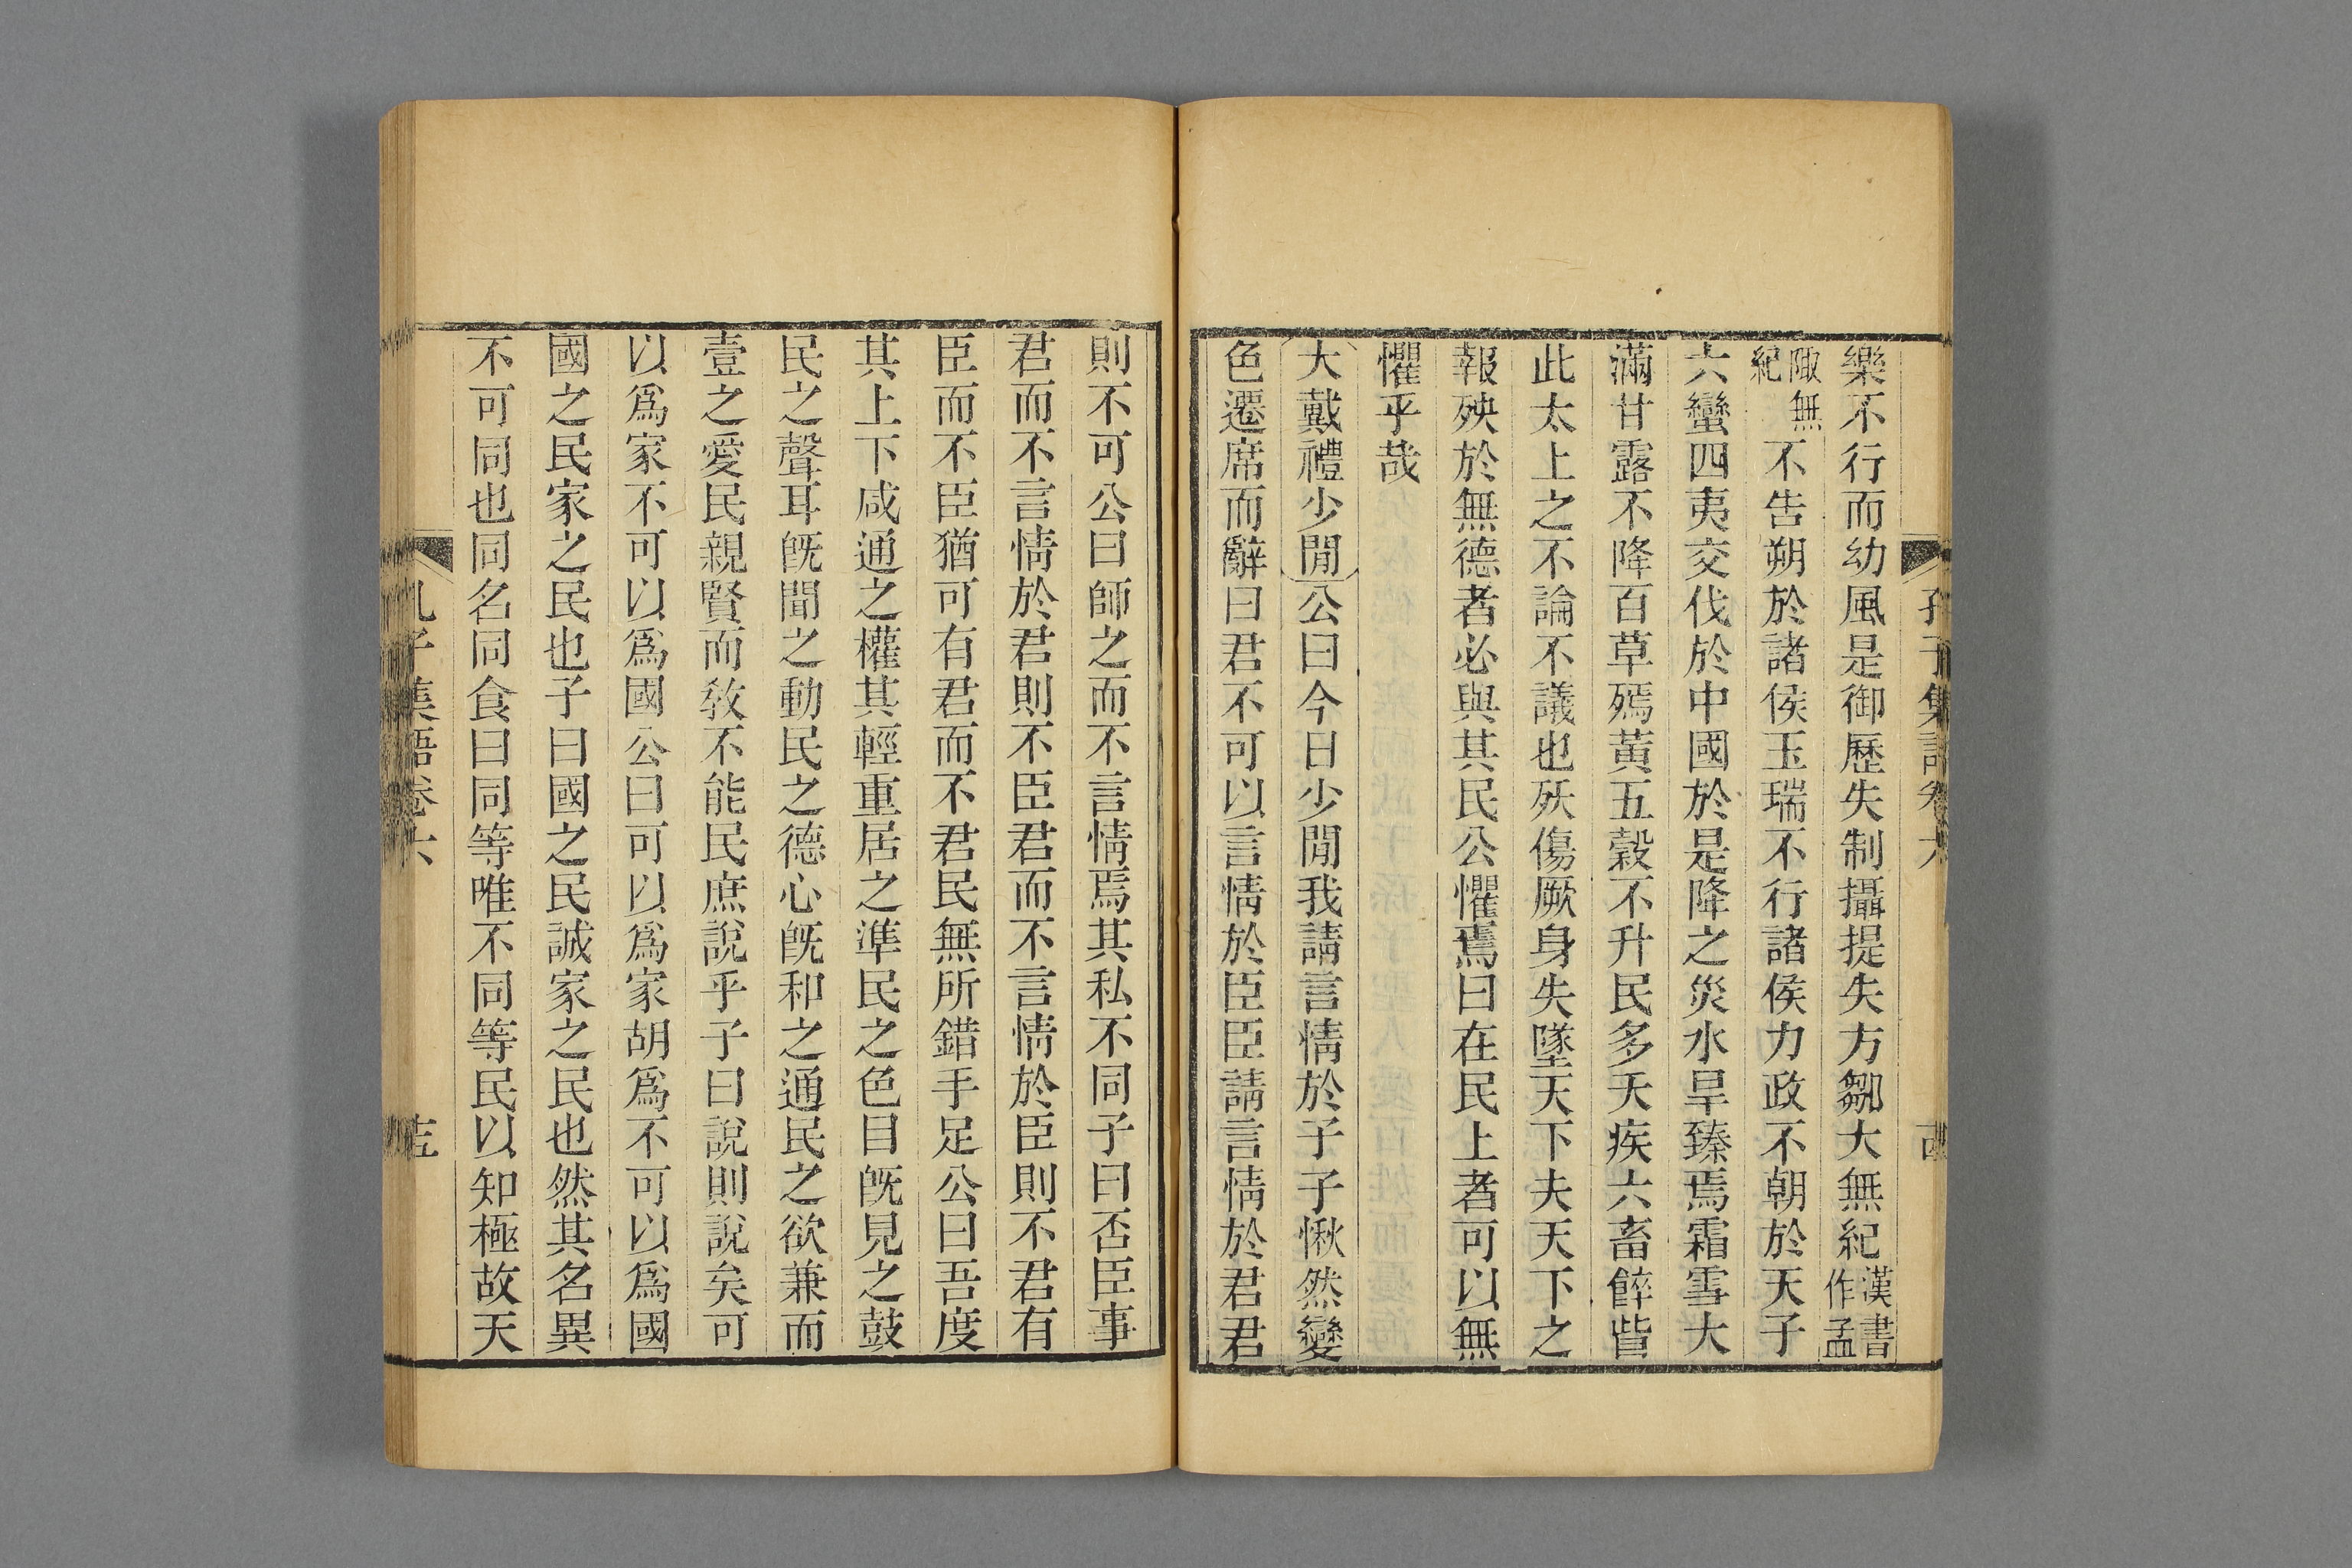 孔子集語卷六 十四
樂不行而幼風是御歷失制攝提失方鄒大無紀漢書作孟
陬無紀不告朔於諸侯玉瑞不行諸侯力政不朝於天子
六蠻四夷交伐於中國於是降之災水旱臻焉霜雪大
滿甘露不降百草殤黃五穀不升民多夭疾六畜餶眥
此太上之不論不議也殀傷厥身失墜天下夫天下之
報殃於無德者必與其民公懼焉曰在民上者可以無
懼乎哉
大戴禮少閒公曰今日少閒我請言情於子子愀然變
色遷席而辭曰君不可以言情於臣臣請言情於君君
則不可公曰師之而不言情焉其私不同子曰否臣事
君而不言情於君則不臣君而不言情於臣則不君有
臣而不臣猶可有君而不君民無所錯手足公曰吾度
其上下咸通之權其輕重居之準民之色目旣見之鼓
民之聲耳旣聞之動民之德心旣和之通民之欲兼而
壹之愛民親賢而敎不能民庶說乎子曰說則說矣可
以爲家不可以爲國公曰可以爲家胡爲不可以爲國
國之民家之民也子曰國之民誠家之民也然其名異
不可同也同名同食曰同等唯不同等民以知極故天
孔子集語卷六 十五